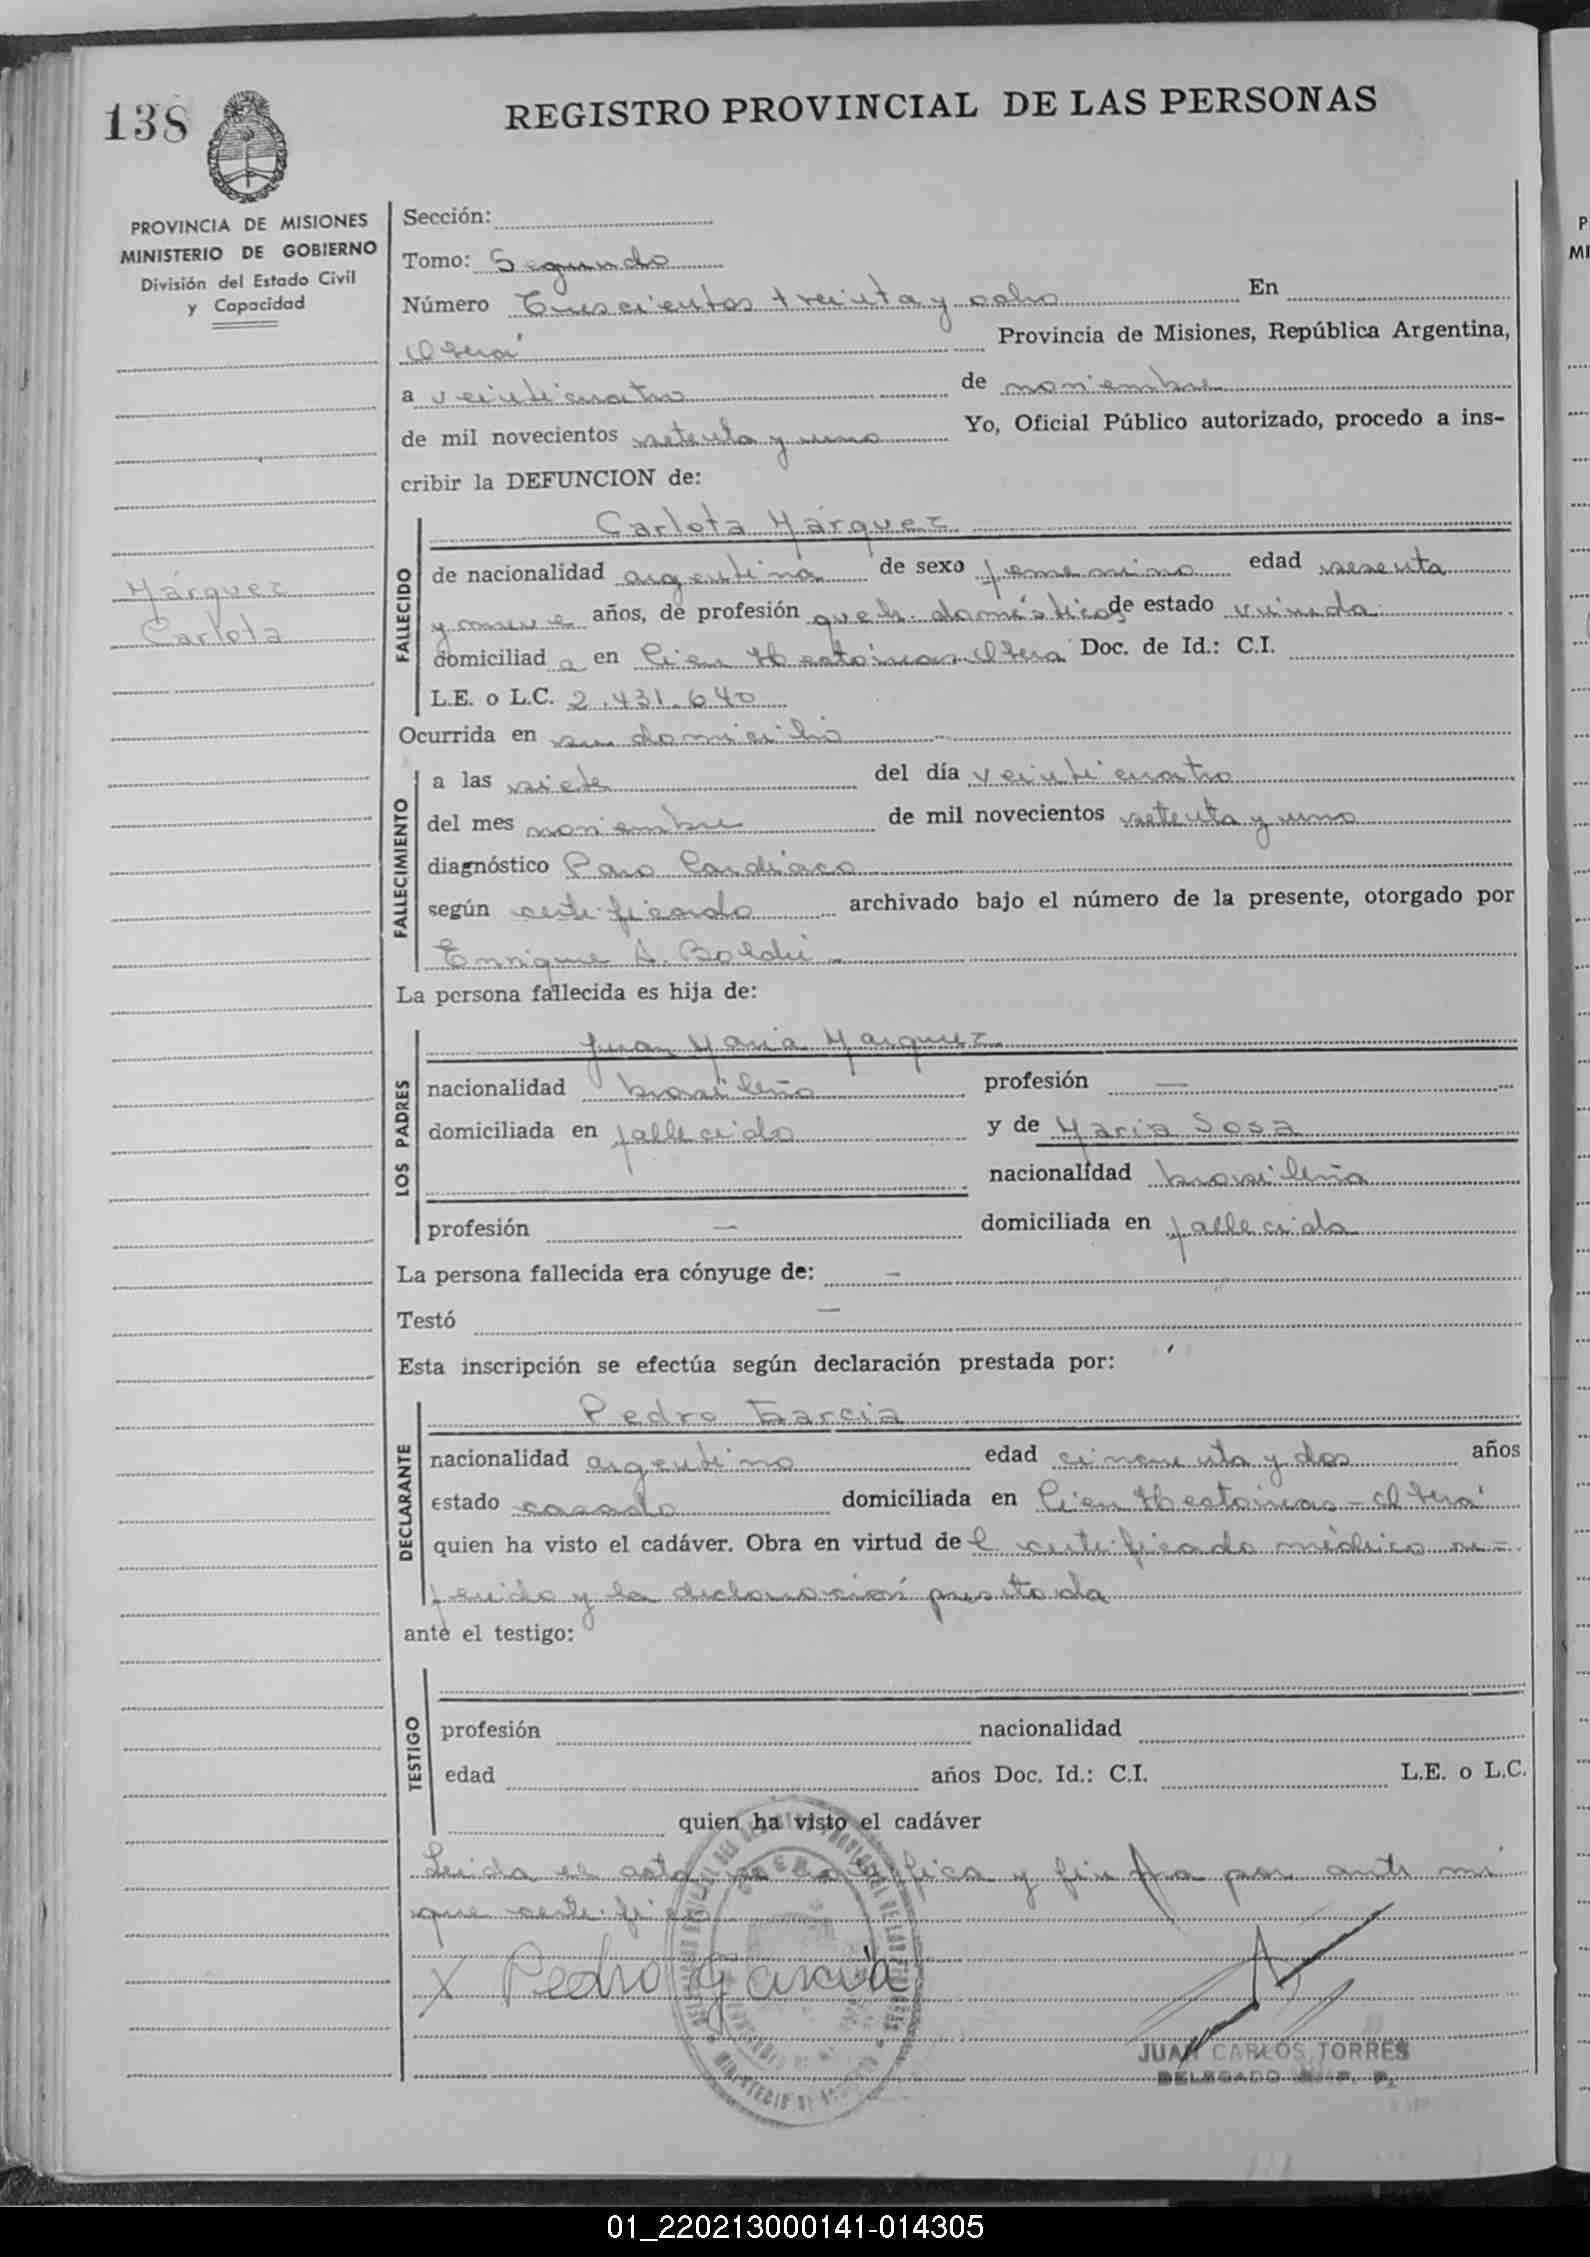 138
REGISTRO PROVINCIAL DE LAS PERSONAS
PROVINCIA DE MISIONES
MINISTERIO DE GOBIERNO
División del Estado Civil
y Capacidad
Márquez
Carlota
Sección:
Tomo: Segundo
Número Trescientos treinta y ocho En
Oberá Provincia de Misiones, República Argentina,
a veinticuatro de noviembre
de mil novecientos setenta y uno Yo, Oficial Público autorizado, procedo a ins-
cribir la DEFUNCION de:
FALLECIDO
Carlota Márquez
de nacionalidad argentina de sexo femenino edad sesenta
y nueve años, de profesión queh. domésticos de estado viuda
domiciliad a en Cien Hectáreas-Oberá Doc. de Id.: C.I.
L.E. o L.C. 2.431.640
Ocurrida en su domicilio
FALLECIMIENTO
a las siete del día veinticuatro
del mes noviembre de mil novecientos setenta y uno
diagnóstico Paro Cardíaco
según certificado archivado bajo el número de la presente, otorgado por
Enrique A.
La persona fallecida es hija de:
LOS PADRES
Juan María Marquez
nacionalidad brasileño profesión —
domiciliada en fallecido y de María Sosa
nacionalidad brasileña
profesión — domiciliada en fallecida
La persona fallecida era cónyuge de: —
Testó —
Esta inscripción se efectúa según declaración prestada por:
DECLARANTE
Pedro García
nacionalidad argentino edad cincuenta y dos años
estado casado domiciliada en Cien Hectáreas - Oberá
quien ha visto el cadáver. Obra en virtud de l certificado médico re-
ferido y la declaración prestada
ante el testigo:
TESTIGO
profesión nacionalidad
edad años Doc. Id.: C.I. L.E. o L.C.
quien ha visto el cadáver
Leída el acta, se ratifica y firma por ante mí
que certifico
X Pedro García
JUAN CARLOS TORRES
DELEGADO
01_220213000141-014305